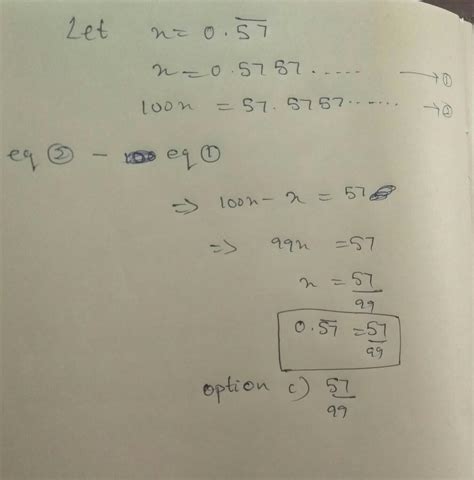 Let x = 0.5̅7̅
x = 0.5757...... → ①
100x = 57.5757...... → ②
eq ② - eq ①
⇒ 100x - x = 57
⇒ 99x = 57
x = 57/99
0.5̅7̅ = 57/99
option c) 57/99